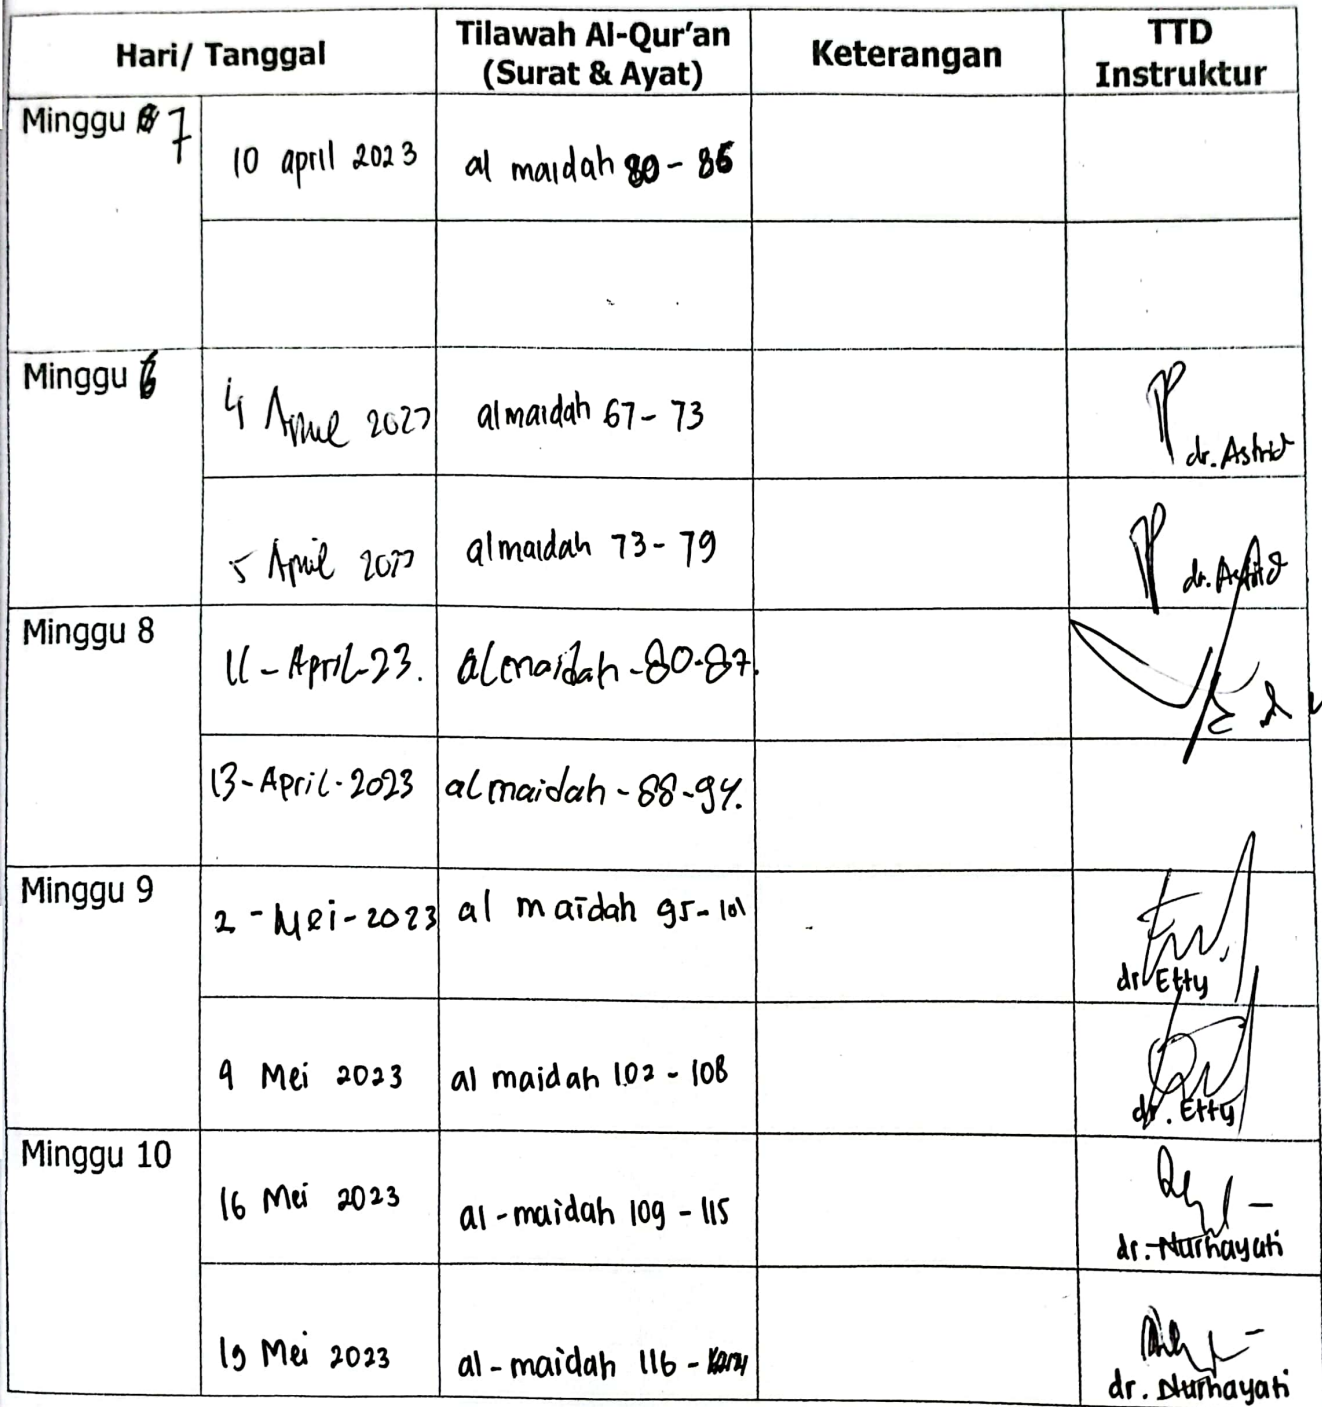 Hari/ Tanggal
Tilawah Al-Qur'an
(Surat & Ayat)
Keterangan
TTD
Instruktur
Minggu 7
10 april 2023
al maidah 80 - 86
Minggu 6
4 April 2023
al maidah 67 - 73
dr. Astrid
5 April 2023
al maidah 73 - 79
dr. Astrid
Minggu 8
11 - April-23.
al maidah - 80-87.
13-April-2023
al maidah - 88-94.
Minggu 9
2 - Mei - 2023
al maidah 95 - 101
dr Etty
9 Mei 2023
al maidah 102 - 108
dr. Etty
Minggu 10
16 Mei 2023
al - maidah 109 - 115
dr. Nurhayati
19 Mei 2023
al - maidah 116 -
dr. Nurhayati